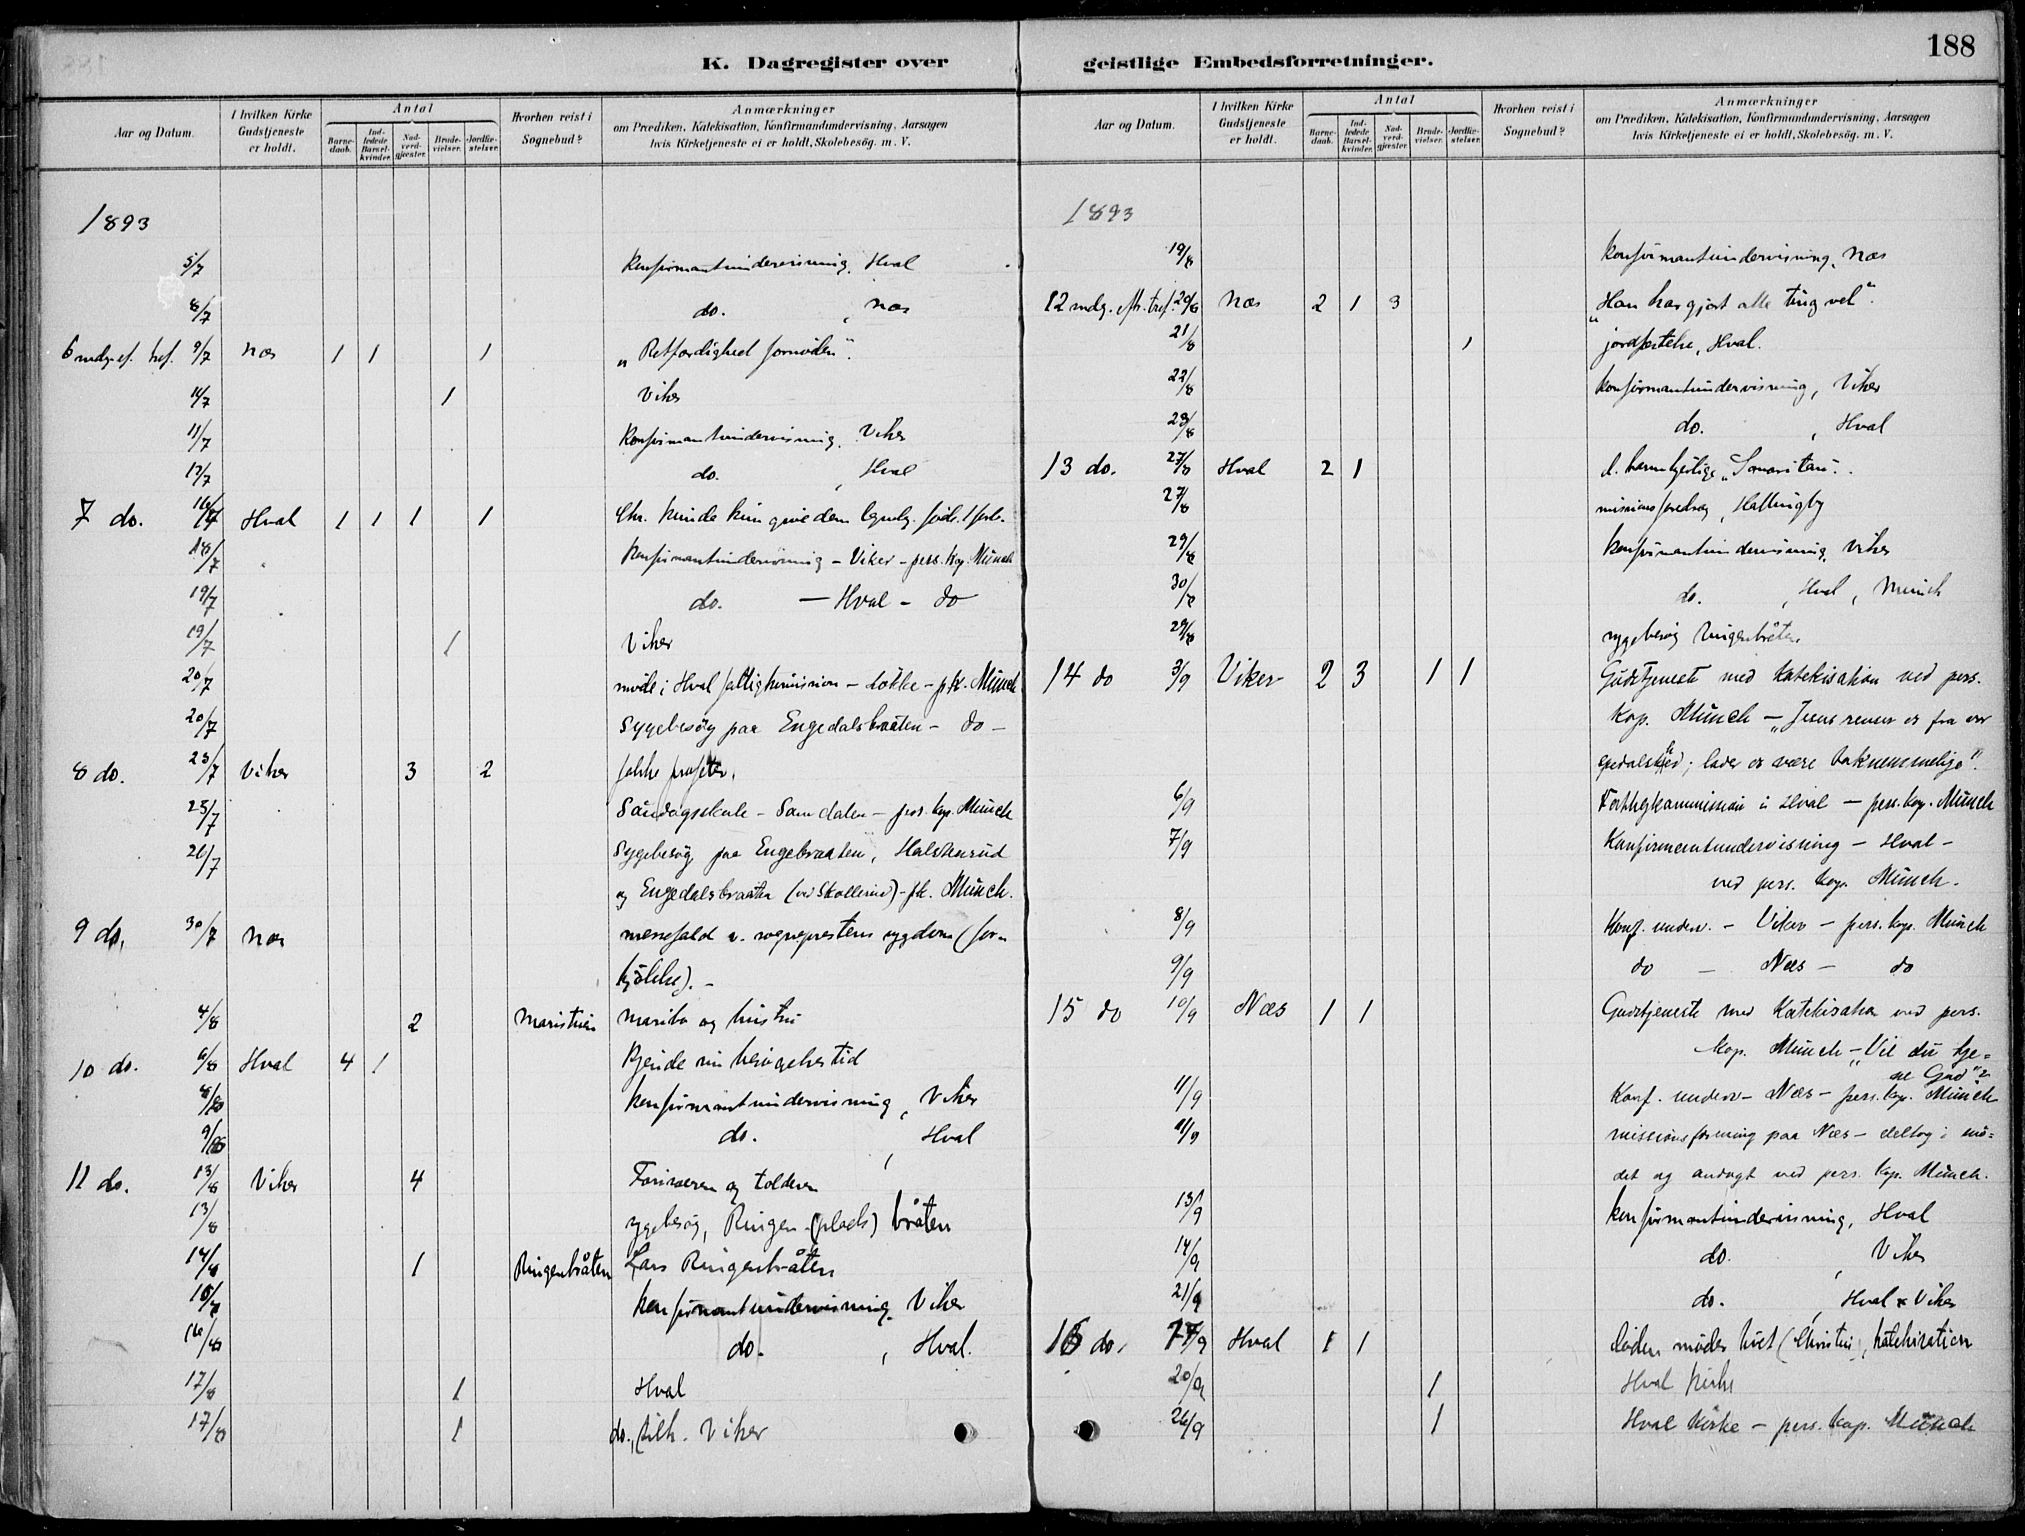 188
K. Dagregister over geistlige Embedsforretninger.
Aar og Datum.
I hvilken Kirke Gudstjeneste er holdt.
Antal
Barnedaab.
Indledede Barselkvinder.
Nadverdgjæster.
Brudevielser.
Jordfæstelser.
Hvorhen reist i Sognebud?
Anmærkninger
om Prædiken, Katekisation, Konfirmandundervisning, Aarsagen
hvis Kirketjeneste ei er holdt, Skolebesøg. m. V.
1893
5/7 konfirmantundervisning, Hval
8/7 do. , Næs
6 9/7 Næs 1 1 1 „Retfærdighed fornøden".
14/7 1 Viker
11/7 Konfirmantundervisning, Viker
12/7 do. , Hval
7 do. 16/7 Hval 1 1 1 1 Chr. kunde kun give dem
18/7 konfirmantundervisning - Viker - pers. kap. Münch
19/7 do. - Hval - do
19/7 1 Viker
20/7 møde i Hval - Løkke - p.k. Münch
20/7 Sygebesøg paa Engedalsbraaten - do -
8 do. 23/7 Viker 3 2 falske profeter.
25/7 Søndagsskole - Somdalen - pers. kap. Münch
26/7 Sygebesøg paa Engebraaten, Halvorsrud
og Engedalsbraaten (ved Skollerud) - p.k. Münch.
9 do. 30/7 Næs messefald v. sogneprestens sygdom (for-
kjølelse). -
4/8 2 Maristuen Maribo og hustru
10 do. 6/8 Hval 4 1 Kjende sin besøgelses tid
8/8 konfirmantundervisning, Viker
9/8 do. , Hval
11 do. 13/8 Viker 4 Farisæeren og tolderen
13/8 sygebesøg, Ringen (plads) bråten
14/8 1 Ringenbråten Lars Ringenbråten
15/8 konfirmantundervisning, Viker
16/8 do. , Hval.
17/8 1 Hval
17/8 1 do., Viker
Aar og Datum.
I hvilken Kirke Gudstjeneste er holdt.
Antal
Barnedaab.
Indledede Barselkvinder.
Nadverdgjæster.
Brudevielser.
Jordfæstelser.
Hvorhen reist i Sognebud?
Anmærkninger
om Prædiken, Katekisation, Konfirmandundervisning, Aarsagen
hvis Kirketjeneste ei er holdt, Skolebesøg. m. V.
1893
19/8 konfirmantundervisning, Næs
12 20/8 Næs 2 1 3 „Han har gjort alle ting vel".
21/8 1 jordfæstelse, Hval.
22/8 konfirmantundervisning, Viker
23/8 do. , Hval
13 do. 27/8 Hval 2 1 d. barmhjertige Samaritan.
27/8 missionsforedrag, Hallingby
29/8 konfirmantundervisning, Viker
30/8 do. , Hval, Münch
29/8 sygebesøg Ringenbråten.
14 do 3/9 Viker 2 3 1 1 Gudstjeneste med Katekisation ved pers.
kap. Münch - „Jesus renser os fra vor
spedalskhed; lader os være taknemmelige".
6/9 Fattigkommission i Hval - pers. kap. Münch
7/9 Konfirmantundervisning - Hval -
ved pers. kap. Münch.
8/9 Konf. underv. - Viker - pers. kap. Münch
9/9 do - Næs - do
15 do 10/9 Næs 1 1 Gudstjeneste med Katekisation ved pers.
kap. Münch - „Vil du tje-
ne Gud"?
11/9 Konf. underv - Næs - pers. kap. Münch
11/9 missionsforening paa Næs - deltog i mø-
det og andagt ved pers. kap. Münch.
13/9 konfirmantundervisning, Hval
14/9 do. , Viker
21/9 do. , Hval & Viker
16 do. 17/9 Hval 1 1 Døden møder livet (Christus), katekisation
20/9 1 Hval kirke
26/9 1 Hval Kirke - pers. kap. Münch